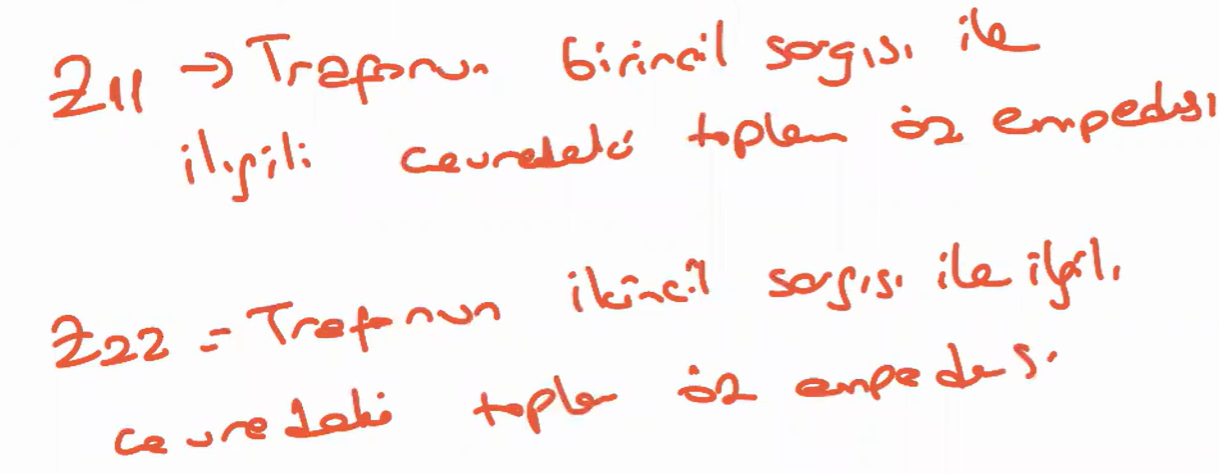 Z11 → Trafonun birincil sargısı ile
ilgili çevredeki toplam öz empedansı
Z22 = Trafonun ikincil sargısı ile ilgili
çevredeki toplam öz empedansı